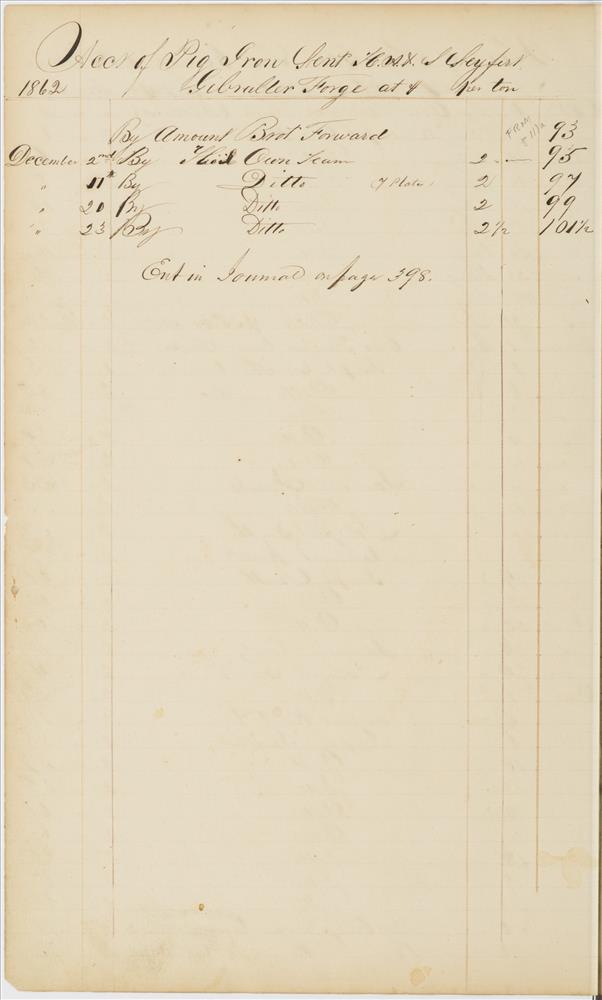 Acct of Pig Iron Sent H. & S Seyfert
1862 Gibralter Forge at $ per ton
FROM
By Amount Brot Forward 93
December 2nd By Their Own Team 2 — 95
" 11th By Ditto 2 97
" 20 By Ditto 2 99
" 23 By Ditto 2 1/2 101 1/2
Ent in Journal on page 398.